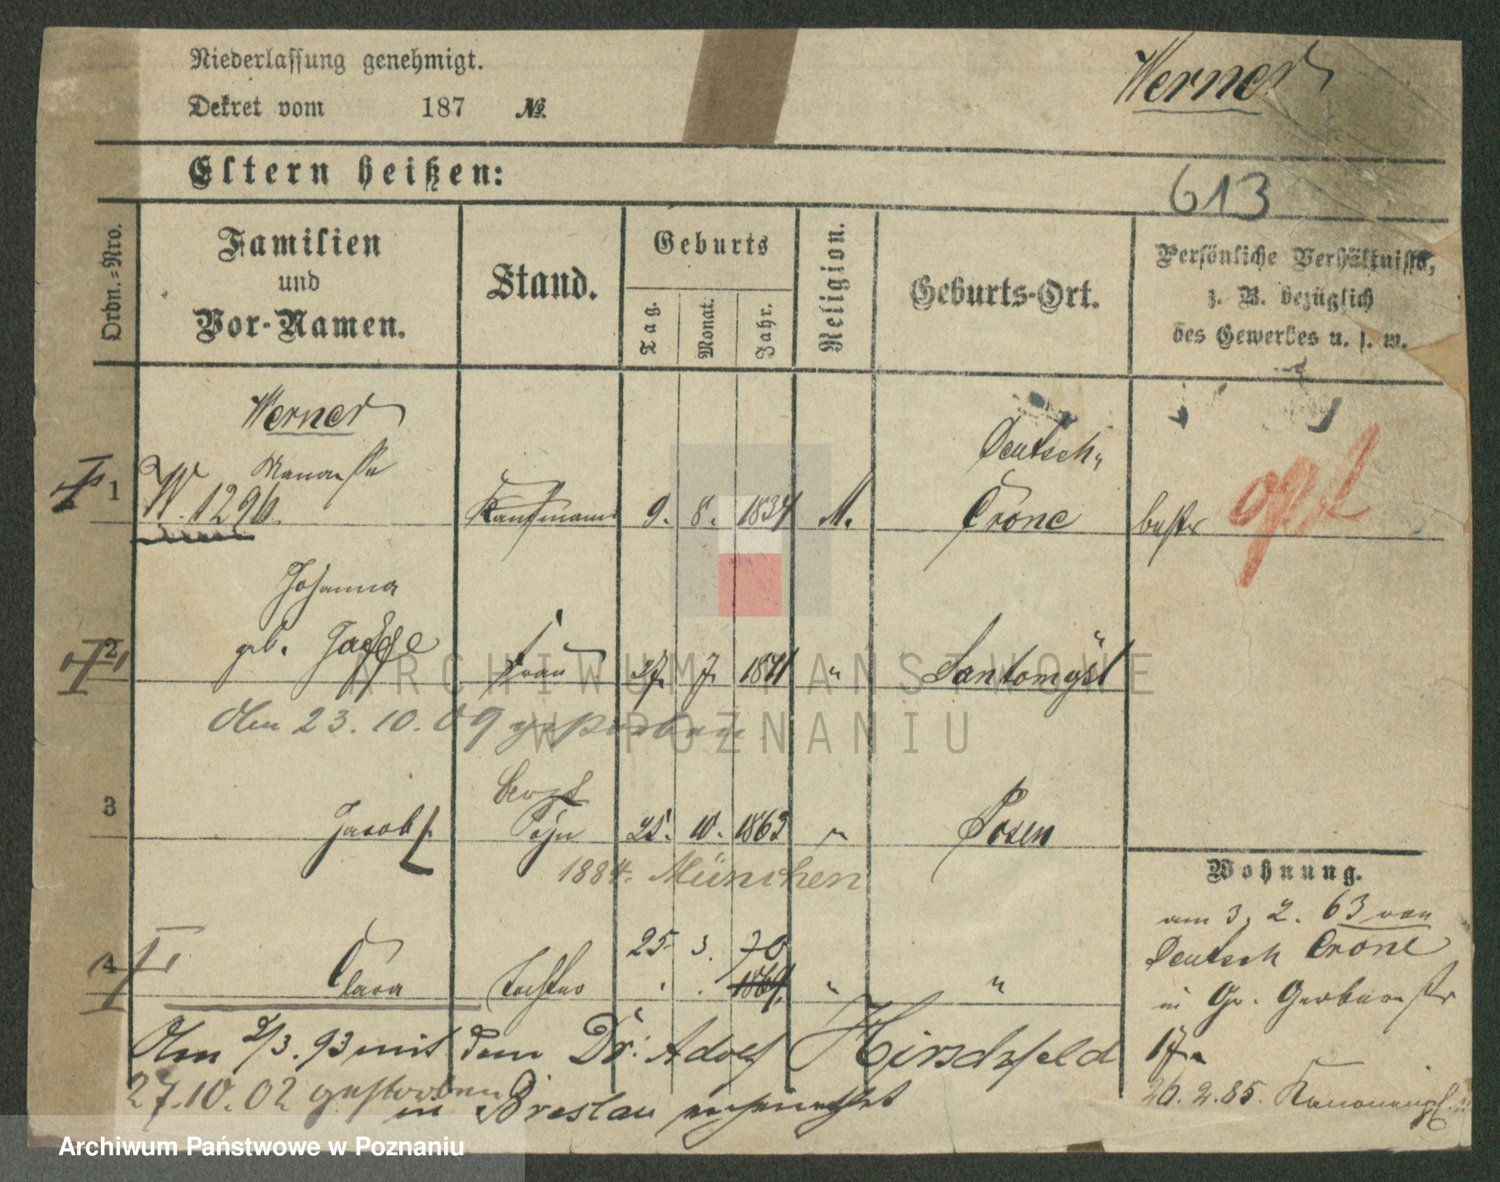 Niederlassung genehmigt.
Werner
Dekret vom 187 №
Eltern heißen:
613
Ordn.-Nro.
Familien
und
Vor-Namen.
Stand.
Geburts
Tag.
Monat.
Jahr.
Religion.
Geburts-Ort.
Persönliche Verhältnisse,
z. B. bezüglich
des Gewerbes u. s. w.
Werner
1
W. 1296.
Kaufmann
9. 8. 1834
M.
Deutsch-
Crone
Johanna
2
geb. Jaffe
Frau
27. 7. 1841
"
Santomysl
Am 23.10.09 gestorben
3
Jacob
Sohn
25. 10. 1863
"
Posen
1884. München
4
Clara
Tochter
25 3. 70
1869.
"
"
Wohnung.
am 3. 2. 63 von
Deutsch Crone
in Gr. Gerberstr
17.
26.2.85.
Am 2/3.93 mit dem Dr. Adolf Hirschfeld
in Breslau verheirathet
27.10.02 gestorben
ARCHIWUM PAŃSTWOWE
W POZNANIU
Archiwum Państwowe w Poznaniu